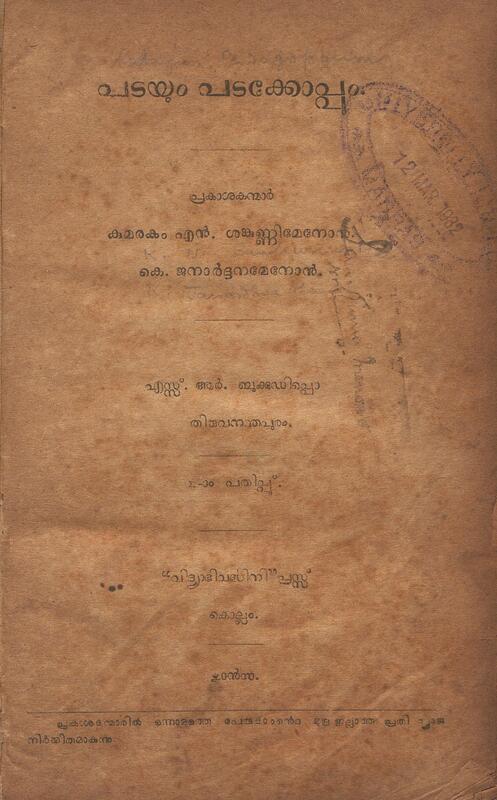 പടയും പടക്കോപ്പും
പ്രകാശകന്മാർ
കുമരകം എൻ. ശങ്കുണ്ണിമേനോൻ.
കെ. ജനാർദ്ദനമേനോൻ.
എസ്സ്. ആർ. ബുക്കുഡിപ്പൊ
തിരുവനന്തപുരം.
൨-ാം പതിപ്പ്.
“വിദ്യാഭിവർദ്ധിനി” പ്രസ്സ്
കൊല്ലം.
പ്രകാശകന്മാരിൽ ഒന്നാമത്തെ മുദ്ര ഇല്ലാത്ത പ്രതി വ്യാജ
നിർമ്മിതമാകുന്നു.
12 MAR 1932